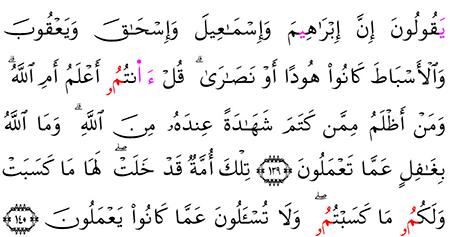 يَقُولُونَ إِنَّ إِبْرَٰهِيمَ وَإِسْمَٰعِيلَ وَإِسْحَٰقَ وَيَعْقُوبَ
وَالْأَسْبَاطَ كَانُوا۟ هُودًا أَوْ نَصَٰرَىٰ ۗ قُلْ ءَا۬نتُمُۥ أَعْلَمُ أَمِ اللَّهُ ۗ
وَمَنْ أَظْلَمُ مِمَّن كَتَمَ شَهَٰدَةً عِندَهُۥ مِنَ اللَّهِ ۗ وَمَا اللَّهُ
بِغَٰفِلٍ عَمَّا تَعْمَلُونَ ١٣٩ تِلْكَ أُمَّةٌ قَدْ خَلَتْ ۖ لَهَا مَا كَسَبَتْ
وَلَكُمُۥ مَا كَسَبْتُمُۥ ۖ وَلَا تُسْـَٔلُونَ عَمَّا كَانُوا۟ يَعْمَلُونَ ١٤٠